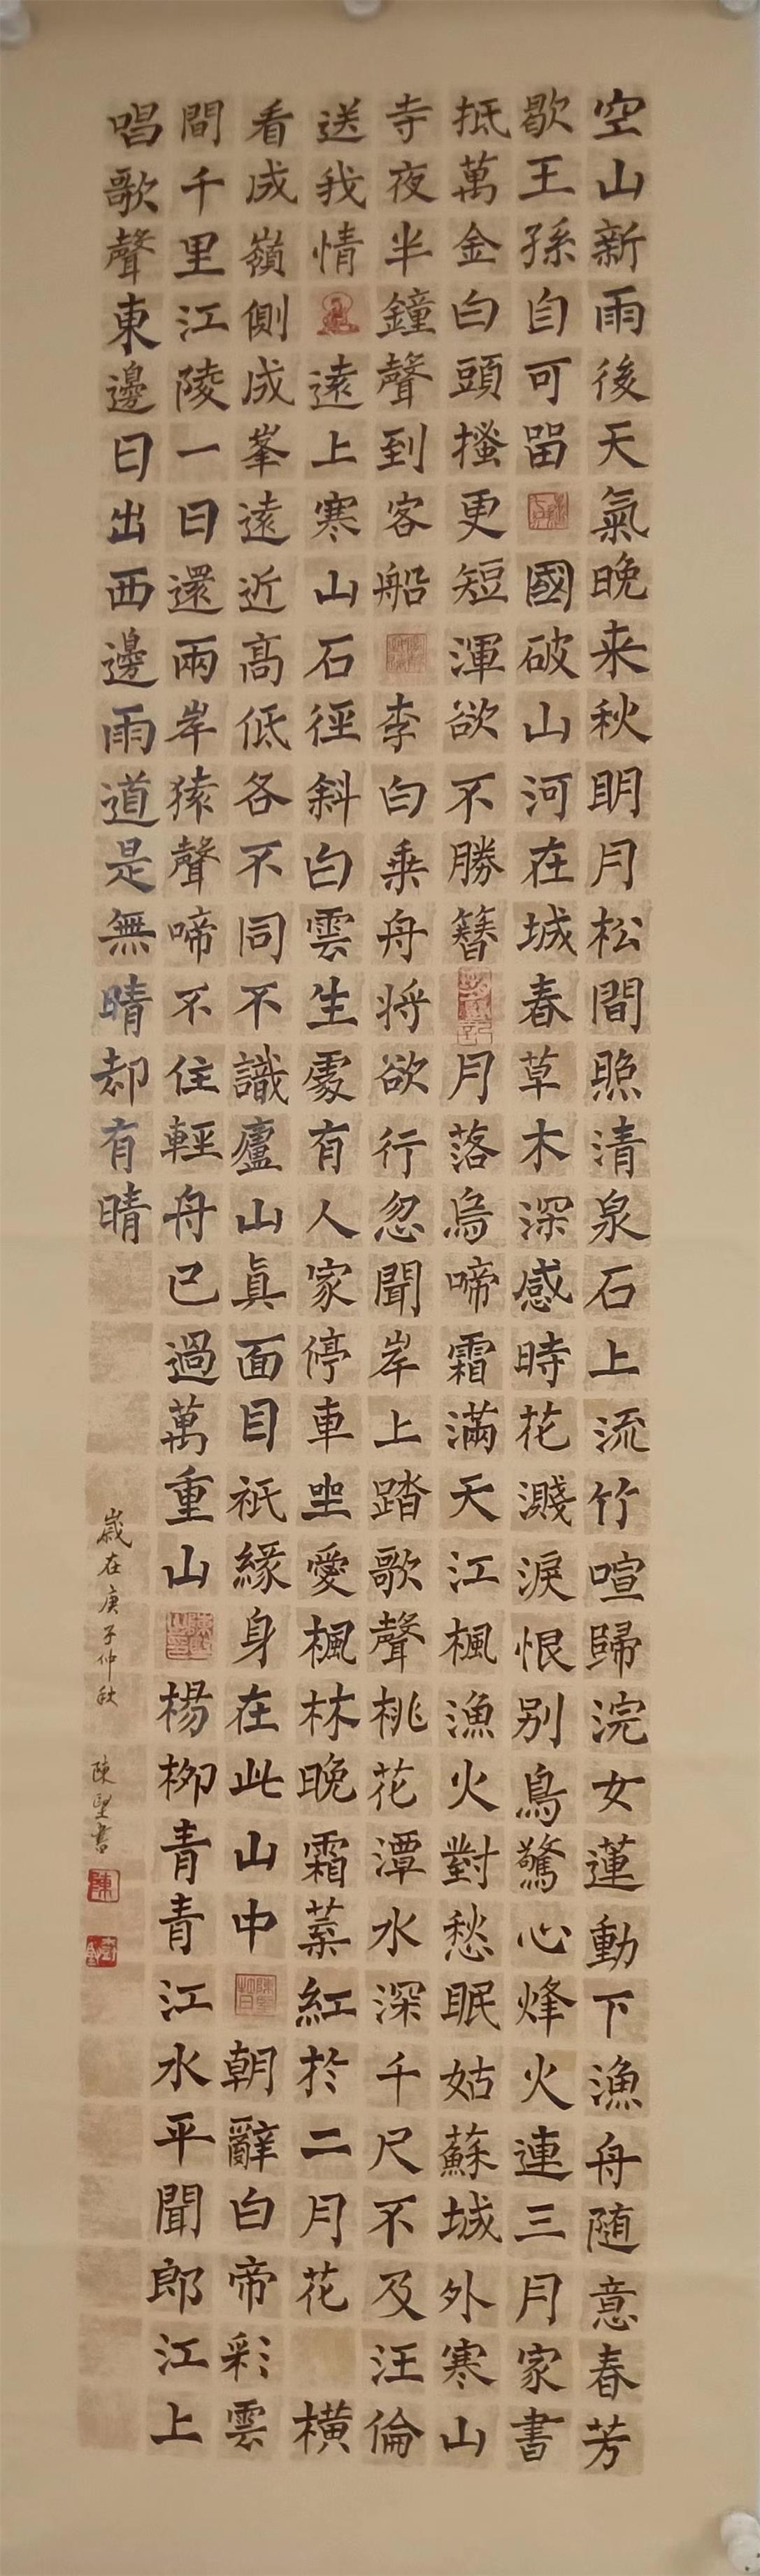 空山新雨後天氣晚来秋明月松間照清泉石上流竹喧歸浣女蓮動下漁舟随意春芳
歇王孫自可留 國破山河在城春草木深感時花濺淚恨别鳥驚心烽火連三月家書
抵萬金白頭搔更短渾欲不勝簪 月落烏啼霜滿天江楓漁火對愁眠姑蘇城外寒山
寺夜半鐘聲到客船 李白乘舟将欲行忽聞岸上踏歌聲桃花潭水深千尺不及汪倫
送我情 遠上寒山石徑斜白雲生處有人家停車坐愛楓林晚霜葉紅於二月花 橫
看成嶺側成峯遠近高低各不同不識廬山真面目祇緣身在此山中 朝辭白帝彩雲
間千里江陵一日還兩岸猿聲啼不住輕舟已過萬重山 楊柳青青江水平聞郎江上
唱歌聲東邊日出西邊雨道是無晴却有晴
歲在庚子仲秋 陳書
陳